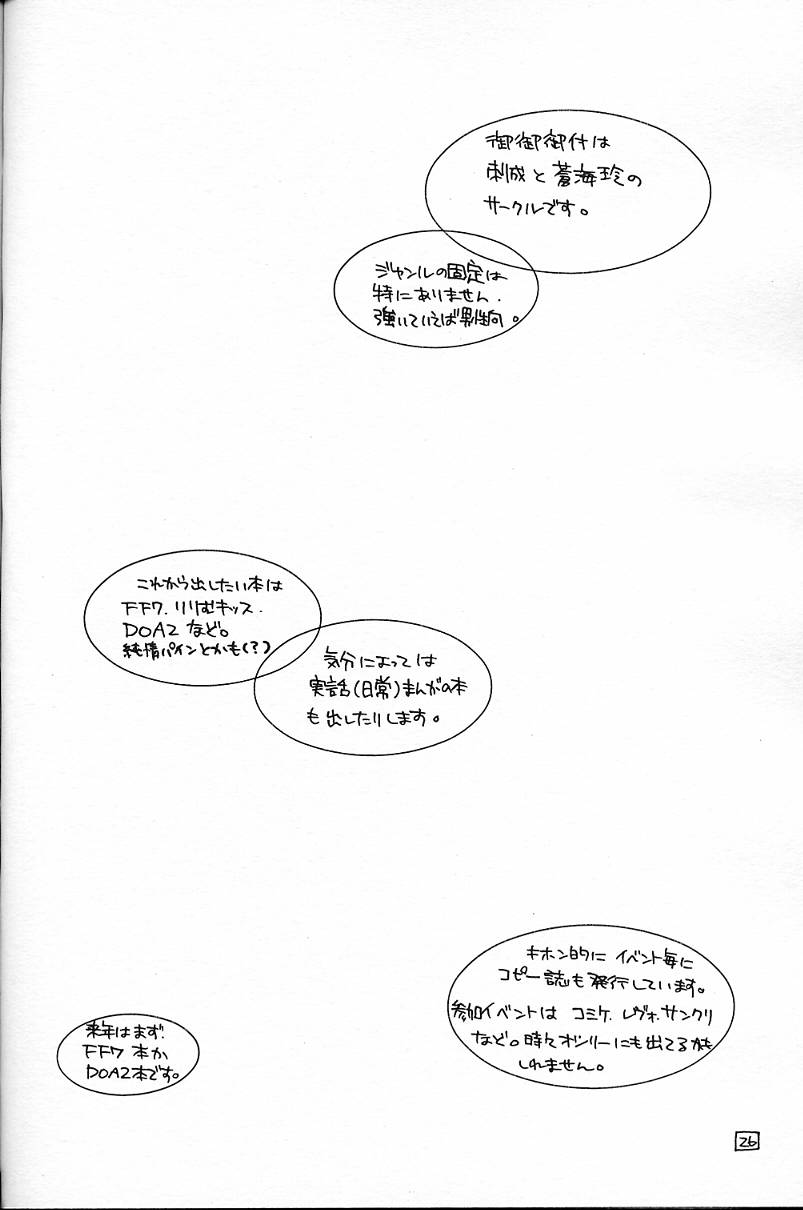 御御御付は
刺成と蒼海玲の
サークルです。
ジャンルの固定は
特にありません.
強いていえば男性向。
これから出したい本は
FF7.りりむキッス.
DOA2 など。
純情パインとかも(?)
気分によっては
実話(日常)まんがの本
も出したりします。
キホン的に イベント毎に
コピー誌も発行しています。
参加イベントは コミケ.レヴォ.サンクリ
など。時々オンリーにも出てるかも
しれません。
来年はまず.
FF7 本か
DOA2本です。
26